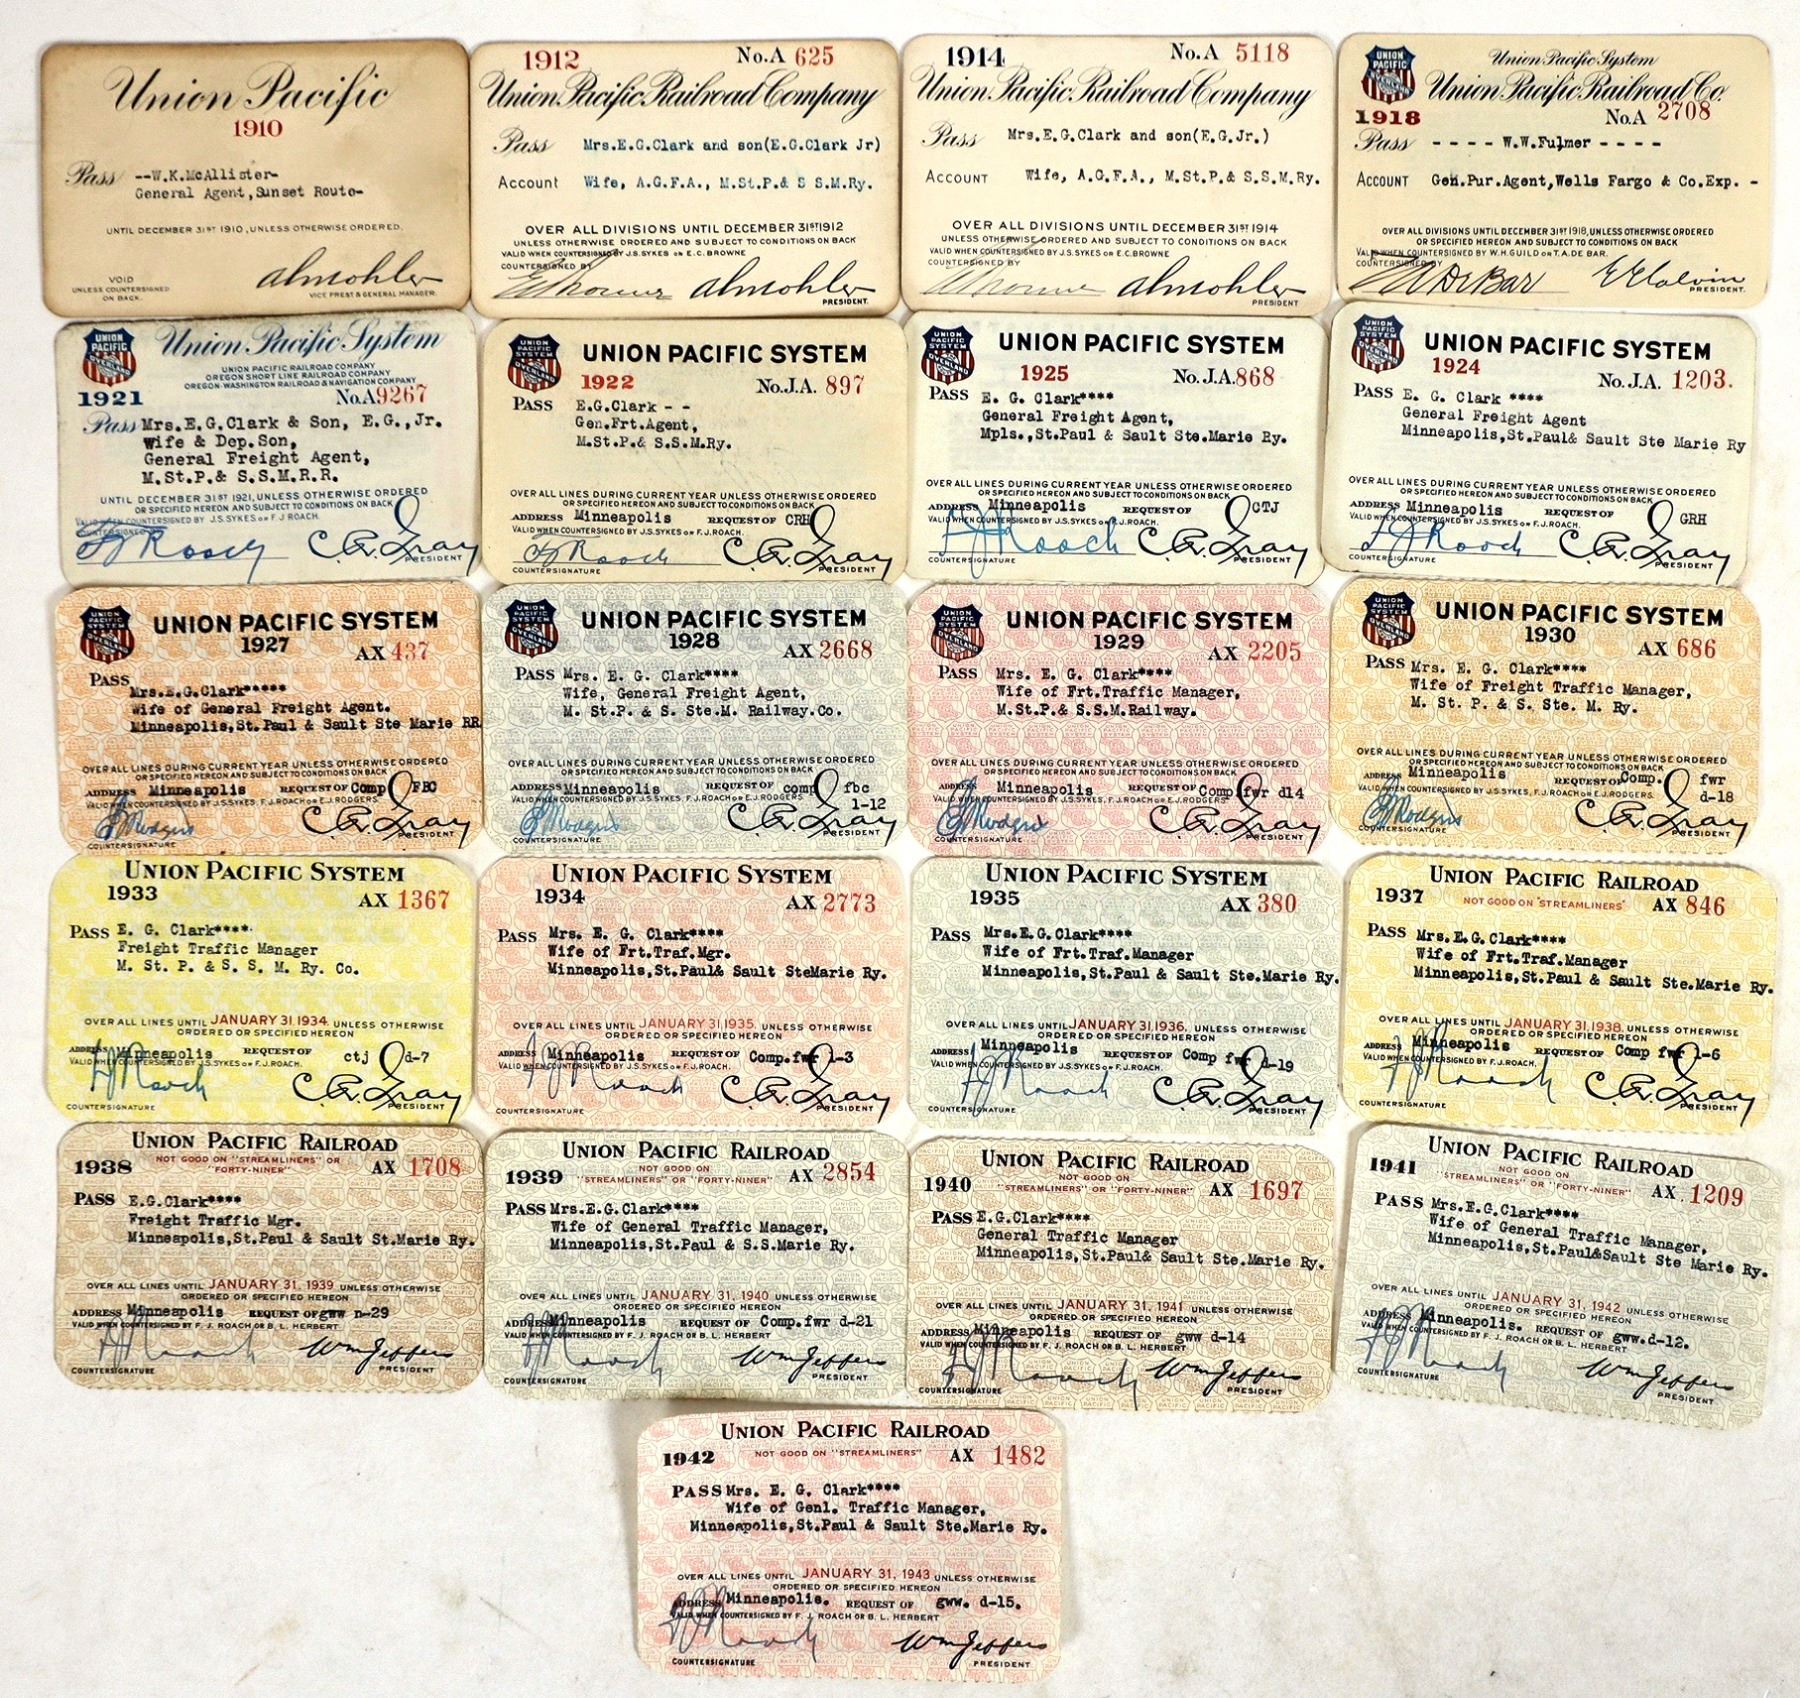 Union Pacific
1910
Pass --W.K.McAllister-
General Agent,Sunset Route-
UNTIL DECEMBER 31ST 1910, UNLESS OTHERWISE ORDERED.
VOID
UNLESS COUNTERSIGNED
ON BACK.
almohler
VICE PREST & GENERAL MANAGER.
1912 No.A 625
Union Pacific Railroad Company
Pass Mrs.E.G.Clark and son(E.G.Clark Jr)
ACCOUNT Wife, A.G.F.A., M.St.P.& S S.M.Ry.
OVER ALL DIVISIONS UNTIL DECEMBER 31ST 1912
UNLESS OTHERWISE ORDERED AND SUBJECT TO CONDITIONS ON BACK
VALID WHEN COUNTERSIGNED BY J.S.SYKES OR E.C.BROWNE
COUNTERSIGNED BY
almohler
PRESIDENT.
1914 No.A 5118
Union Pacific Railroad Company
Pass Mrs.E.G.Clark and son(E.G.Jr.)
ACCOUNT Wife, A.G.F.A., M.St.P.& S.S.M.Ry.
OVER ALL DIVISIONS UNTIL DECEMBER 31ST 1914
UNLESS OTHERWISE ORDERED AND SUBJECT TO CONDITIONS ON BACK
VALID WHEN COUNTERSIGNED BY J.S.SYKES OR E.C.BROWNE
COUNTERSIGNED BY
almohler
PRESIDENT
UNION PACIFIC OVERLAND
Union Pacific System
Union Pacific Railroad Co.
1918 No.A 2708
Pass - - - - W.W.Fulmer - - - -
ACCOUNT Gen.Pur.Agent,Wells Fargo & Co.Exp. -
OVER ALL DIVISIONS UNTIL DECEMBER 31ST 1918, UNLESS OTHERWISE ORDERED
OR SPECIFIED HEREON AND SUBJECT TO CONDITIONS ON BACK
VALID WHEN COUNTERSIGNED BY W.H.GUILD OR T.A.DE BAR.
COUNTERSIGNED BY
TA DeBar E E Calvin
PRESIDENT.
UNION PACIFIC OVERLAND
Union Pacific System
UNION PACIFIC RAILROAD COMPANY
OREGON SHORT LINE RAILROAD COMPANY
OREGON-WASHINGTON RAILROAD & NAVIGATION COMPANY
1921 No.A9267
Pass Mrs.E.G.Clark & Son, E.G.,Jr.
Wife & Dep.Son,
General Freight Agent,
M.St.P.& S.S.M.R.R.
UNTIL DECEMBER 31ST 1921, UNLESS OTHERWISE ORDERED
OR SPECIFIED HEREON AND SUBJECT TO CONDITIONS ON BACK
VALID WHEN COUNTERSIGNED BY J.S.SYKES OR F.J.ROACH.
COUNTERSIGNED
F J Roach C.R. Gray
PRESIDENT
UNION PACIFIC SYSTEM OVERLAND
UNION PACIFIC SYSTEM
1922 No.J.A. 897
PASS E.G.Clark - -
Gen.Frt.Agent,
M.St.P.& S.S.M.Ry.
OVER ALL LINES DURING CURRENT YEAR UNLESS OTHERWISE ORDERED
OR SPECIFIED HEREON AND SUBJECT TO CONDITIONS ON BACK
ADDRESS Minneapolis REQUEST OF CRH
VALID WHEN COUNTERSIGNED BY J.S.SYKES OR F.J.ROACH.
F J Roach C.R. Gray
COUNTERSIGNATURE PRESIDENT
UNION PACIFIC SYSTEM OVERLAND
UNION PACIFIC SYSTEM
1925 No.J.A.868
PASS E. G. Clark****
General Freight Agent,
Mpls.,St.Paul & Sault Ste.Marie Ry.
OVER ALL LINES DURING CURRENT YEAR UNLESS OTHERWISE ORDERED
OR SPECIFIED HEREON AND SUBJECT TO CONDITIONS ON BACK
ADDRESS Minneapolis REQUEST OF CTJ
VALID WHEN COUNTERSIGNED BY J.S.SYKES OR F.J.ROACH.
F J Roach C.R. Gray
COUNTERSIGNATURE PRESIDENT
UNION PACIFIC SYSTEM OVERLAND
UNION PACIFIC SYSTEM
1924 No.J.A. 1203.
PASS E. G. Clark ****
General Freight Agent
Minneapolis,St.Paul& Sault Ste Marie Ry
OVER ALL LINES DURING CURRENT YEAR UNLESS OTHERWISE ORDERED
OR SPECIFIED HEREON AND SUBJECT TO CONDITIONS ON BACK
ADDRESS Minneapolis REQUEST OF GRH
VALID WHEN COUNTERSIGNED BY J.S.SYKES OR F.J.ROACH.
F J Roach C.R. Gray
COUNTERSIGNATURE PRESIDENT
UNION PACIFIC SYSTEM OVERLAND
UNION PACIFIC SYSTEM
1927 AX 437
PASS Mrs.E.G.Clark*****
Wife of General Freight Agent.
Minneapolis,St.Paul & Sault Ste Marie RR
OVER ALL LINES DURING CURRENT YEAR UNLESS OTHERWISE ORDERED
OR SPECIFIED HEREON AND SUBJECT TO CONDITIONS ON BACK
ADDRESS Minneapolis REQUEST OF Comp FBC
VALID WHEN COUNTERSIGNED BY J.S.SYKES, F.J.ROACH OR E.J.RODGERS
E J Rodgers C.R. Gray
COUNTERSIGNATURE PRESIDENT
UNION PACIFIC SYSTEM OVERLAND
UNION PACIFIC SYSTEM
1928 AX 2668
PASS Mrs. E. G. Clark****
Wife, General Freight Agent,
M. St.P. & S. Ste.M. Railway.Co.
OVER ALL LINES DURING CURRENT YEAR UNLESS OTHERWISE ORDERED
OR SPECIFIED HEREON AND SUBJECT TO CONDITIONS ON BACK
ADDRESS Minneapolis REQUEST OF comp fbc
VALID WHEN COUNTERSIGNED BY J.S.SYKES, F.J.ROACH OR E.J.RODGERS 1-12
E J Rodgers C.R. Gray
COUNTERSIGNATURE PRESIDENT
UNION PACIFIC SYSTEM OVERLAND
UNION PACIFIC SYSTEM
1929 AX 2205
PASS Mrs. E. G. Clark****
Wife of Frt.Traffic Manager,
M.St.P.& S.S.M.Railway.
OVER ALL LINES DURING CURRENT YEAR UNLESS OTHERWISE ORDERED
OR SPECIFIED HEREON AND SUBJECT TO CONDITIONS ON BACK
ADDRESS Minneapolis REQUEST OF Comp fwr d14
VALID WHEN COUNTERSIGNED BY J.S.SYKES, F.J.ROACH OR E.J.RODGERS
E J Rodgers C.R. Gray
COUNTERSIGNATURE PRESIDENT
UNION PACIFIC SYSTEM OVERLAND
UNION PACIFIC SYSTEM
1930 AX 686
PASS Mrs. E. G. Clark****
Wife of Freight Traffic Manager,
M. St. P. & S. Ste. M. Ry.
OVER ALL LINES DURING CURRENT YEAR UNLESS OTHERWISE ORDERED
OR SPECIFIED HEREON AND SUBJECT TO CONDITIONS ON BACK
ADDRESS Minneapolis REQUEST OF Comp. fwr
VALID WHEN COUNTERSIGNED BY J.S.SYKES, F.J.ROACH OR E.J.RODGERS. d-18
E J Rodgers C.R. Gray
COUNTERSIGNATURE PRESIDENT
UNION PACIFIC SYSTEM
1933 AX 1367
PASS E. G. Clark****
Freight Traffic Manager
M. St. P. & S. S. M. Ry. Co.
OVER ALL LINES UNTIL JANUARY 31, 1934, UNLESS OTHERWISE
ORDERED OR SPECIFIED HEREON
ADDRESS Minneapolis REQUEST OF ctj d-7
VALID WHEN COUNTERSIGNED BY J.S.SYKES OR F.J.ROACH.
F J Roach C.R. Gray
COUNTERSIGNATURE PRESIDENT
UNION PACIFIC SYSTEM
1934 AX 2773
PASS Mrs. E. G. Clark****
Wife of Frt.Traf.Mgr.
Minneapolis,St.Paul& Sault SteMarie Ry.
OVER ALL LINES UNTIL JANUARY 31, 1935, UNLESS OTHERWISE
ORDERED OR SPECIFIED HEREON
ADDRESS Minneapolis REQUEST OF Comp.fwr 1-3
VALID WHEN COUNTERSIGNED BY J.S.SYKES OR F.J.ROACH.
F J Roach C.R. Gray
COUNTERSIGNATURE PRESIDENT
UNION PACIFIC SYSTEM
1935 AX 380
PASS Mrs.E.G.Clark****
Wife of Frt.Traf.Manager
Minneapolis,St.Paul & Sault Ste.Marie Ry.
OVER ALL LINES UNTIL JANUARY 31, 1936, UNLESS OTHERWISE
ORDERED OR SPECIFIED HEREON
ADDRESS Minneapolis REQUEST OF Comp fwr d-19
VALID WHEN COUNTERSIGNED BY J.S.SYKES OR F.J.ROACH.
F J Roach C.R. Gray
COUNTERSIGNATURE PRESIDENT
UNION PACIFIC RAILROAD
1937 NOT GOOD ON "STREAMLINERS" AX 846
PASS Mrs.E.G.Clark****
Wife of Frt.Traf.Manager
Minneapolis,St.Paul & Sault Ste.Marie Ry.
OVER ALL LINES UNTIL JANUARY 31, 1938, UNLESS OTHERWISE
ORDERED OR SPECIFIED HEREON
ADDRESS Minneapolis REQUEST OF Comp fwr 1-6
VALID WHEN COUNTERSIGNED BY F.J.ROACH.
F J Roach C.R. Gray
COUNTERSIGNATURE PRESIDENT
UNION PACIFIC RAILROAD
1938 NOT GOOD ON "STREAMLINERS" OR AX 1708
"FORTY-NINER"
PASS E.G.Clark****
Freight Traffic Mgr.
Minneapolis,St.Paul & Sault St.Marie Ry.
OVER ALL LINES UNTIL JANUARY 31, 1939 UNLESS OTHERWISE
ORDERED OR SPECIFIED HEREON
ADDRESS Minneapolis REQUEST OF gww D-29
VALID WHEN COUNTERSIGNED BY F. J. ROACH OR B. L. HERBERT
F J Roach Wm Jeffers
COUNTERSIGNATURE PRESIDENT
UNION PACIFIC RAILROAD
NOT GOOD ON
1939 "STREAMLINERS" OR "FORTY-NINER" AX 2854
PASS Mrs.E.G.Clark****
Wife of General Traffic Manager,
Minneapolis,St.Paul & S.S.Marie Ry.
OVER ALL LINES UNTIL JANUARY 31, 1940 UNLESS OTHERWISE
ORDERED OR SPECIFIED HEREON
ADDRESS Minneapolis REQUEST OF Comp.fwr d-21
VALID WHEN COUNTERSIGNED BY F. J. ROACH OR B. L. HERBERT
F J Roach Wm Jeffers
COUNTERSIGNATURE PRESIDENT
UNION PACIFIC RAILROAD
NOT GOOD ON
1940 "STREAMLINERS" OR "FORTY-NINER" AX 1697
PASS E.G.Clark****
General Traffic Manager
Minneapolis,St.Paul& Sault Ste.Marie Ry.
OVER ALL LINES UNTIL JANUARY 31, 1941 UNLESS OTHERWISE
ORDERED OR SPECIFIED HEREON
ADDRESS Minneapolis REQUEST OF gww d-14
VALID WHEN COUNTERSIGNED BY F. J. ROACH OR B. L. HERBERT
F J Roach Wm Jeffers
COUNTERSIGNATURE PRESIDENT
UNION PACIFIC RAILROAD
NOT GOOD ON
1941 "STREAMLINERS" OR "FORTY-NINER" AX. 1209
PASS Mrs.E.G.Clark****
Wife of General Traffic Manager,
Minneapolis,St.Paul&Sault Ste Marie Ry.
OVER ALL LINES UNTIL JANUARY 31, 1942 UNLESS OTHERWISE
ORDERED OR SPECIFIED HEREON
ADDRESS Minneapolis. REQUEST OF gww.d-12.
VALID WHEN COUNTERSIGNED BY F. J. ROACH OR B. L. HERBERT
F J Roach Wm Jeffers
COUNTERSIGNATURE PRESIDENT
UNION PACIFIC RAILROAD
1942 NOT GOOD ON "STREAMLINERS" AX 1482
PASS Mrs. E. G. Clark****
Wife of Genl. Traffic Manager,
Minneapolis,St.Paul & Sault Ste.Marie Ry.
OVER ALL LINES UNTIL JANUARY 31, 1943 UNLESS OTHERWISE
ORDERED OR SPECIFIED HEREON
ADDRESS Minneapolis. REQUEST OF gww. d-15.
VALID WHEN COUNTERSIGNED BY F. J. ROACH OR B. L. HERBERT
F J Roach Wm Jeffers
COUNTERSIGNATURE PRESIDENT